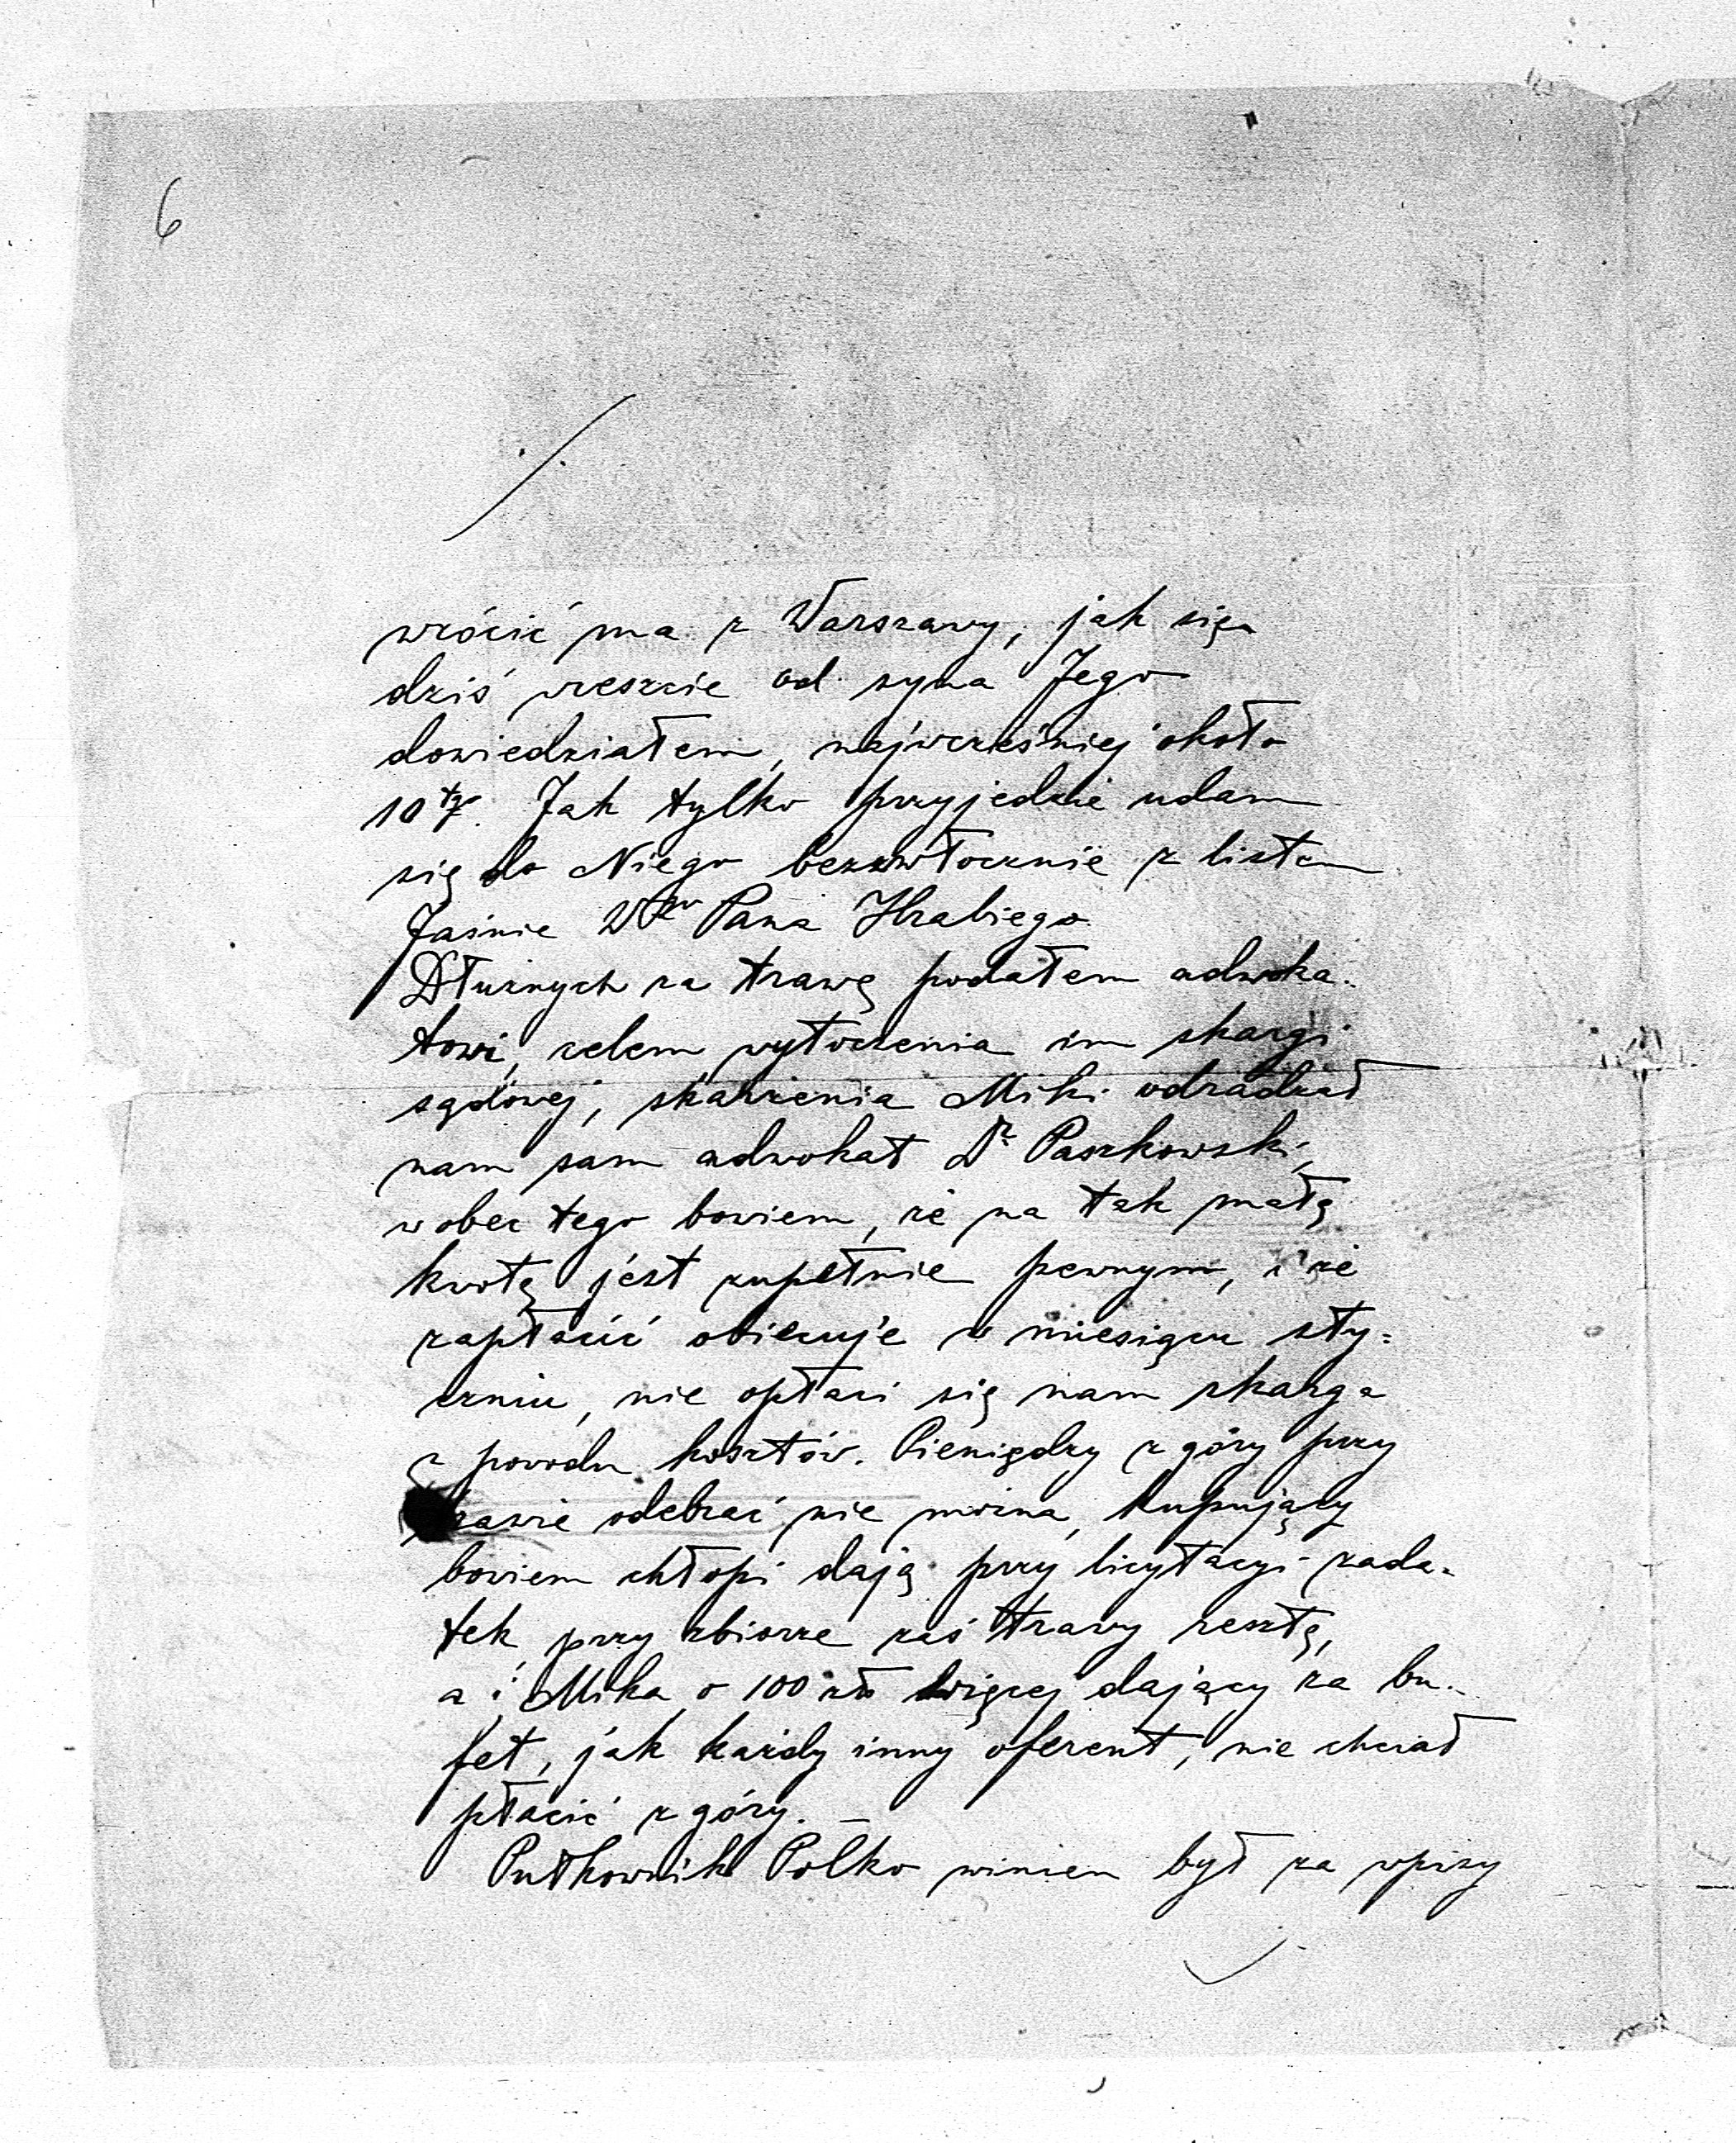 6
./.
wrócić ma z Warszawy, jak się
dziś wreszcie od syna Jego
dowiedziałem, najwcześniej około
10tgo. Jak tylko przyjedzie udam
się do Niego bezzwłocznie z listem
Jaśnie Wgo Pana Hrabiego.
Dłużnych za trawę podałem adwoka-
towi, celem wytoczenia im skargi
sądowej, skarżenia Miki odradzał
nam sam adwokat Dr Paszkowski,
wobec tego bowiem, że na tak małą
kwotę jest zupełnie pewnym, i że
zapłacić obiecuje w miesiącu sty=
czniu, nie opłaci się nam skarga
z powodu kosztów. Pieniędzy z góry przy
trawie odebrać nie można, kupujący
bowiem chłopi dają przy licytacyi zada-
tek, przy zbiorze zaś trawy resztę,
a i Mika o 100 zł więcej dający za bu-
fet, jak każdy inny oferent, nie chciał
płacić z góry. —
Pułkownik Polko winien był za wpisy
./.